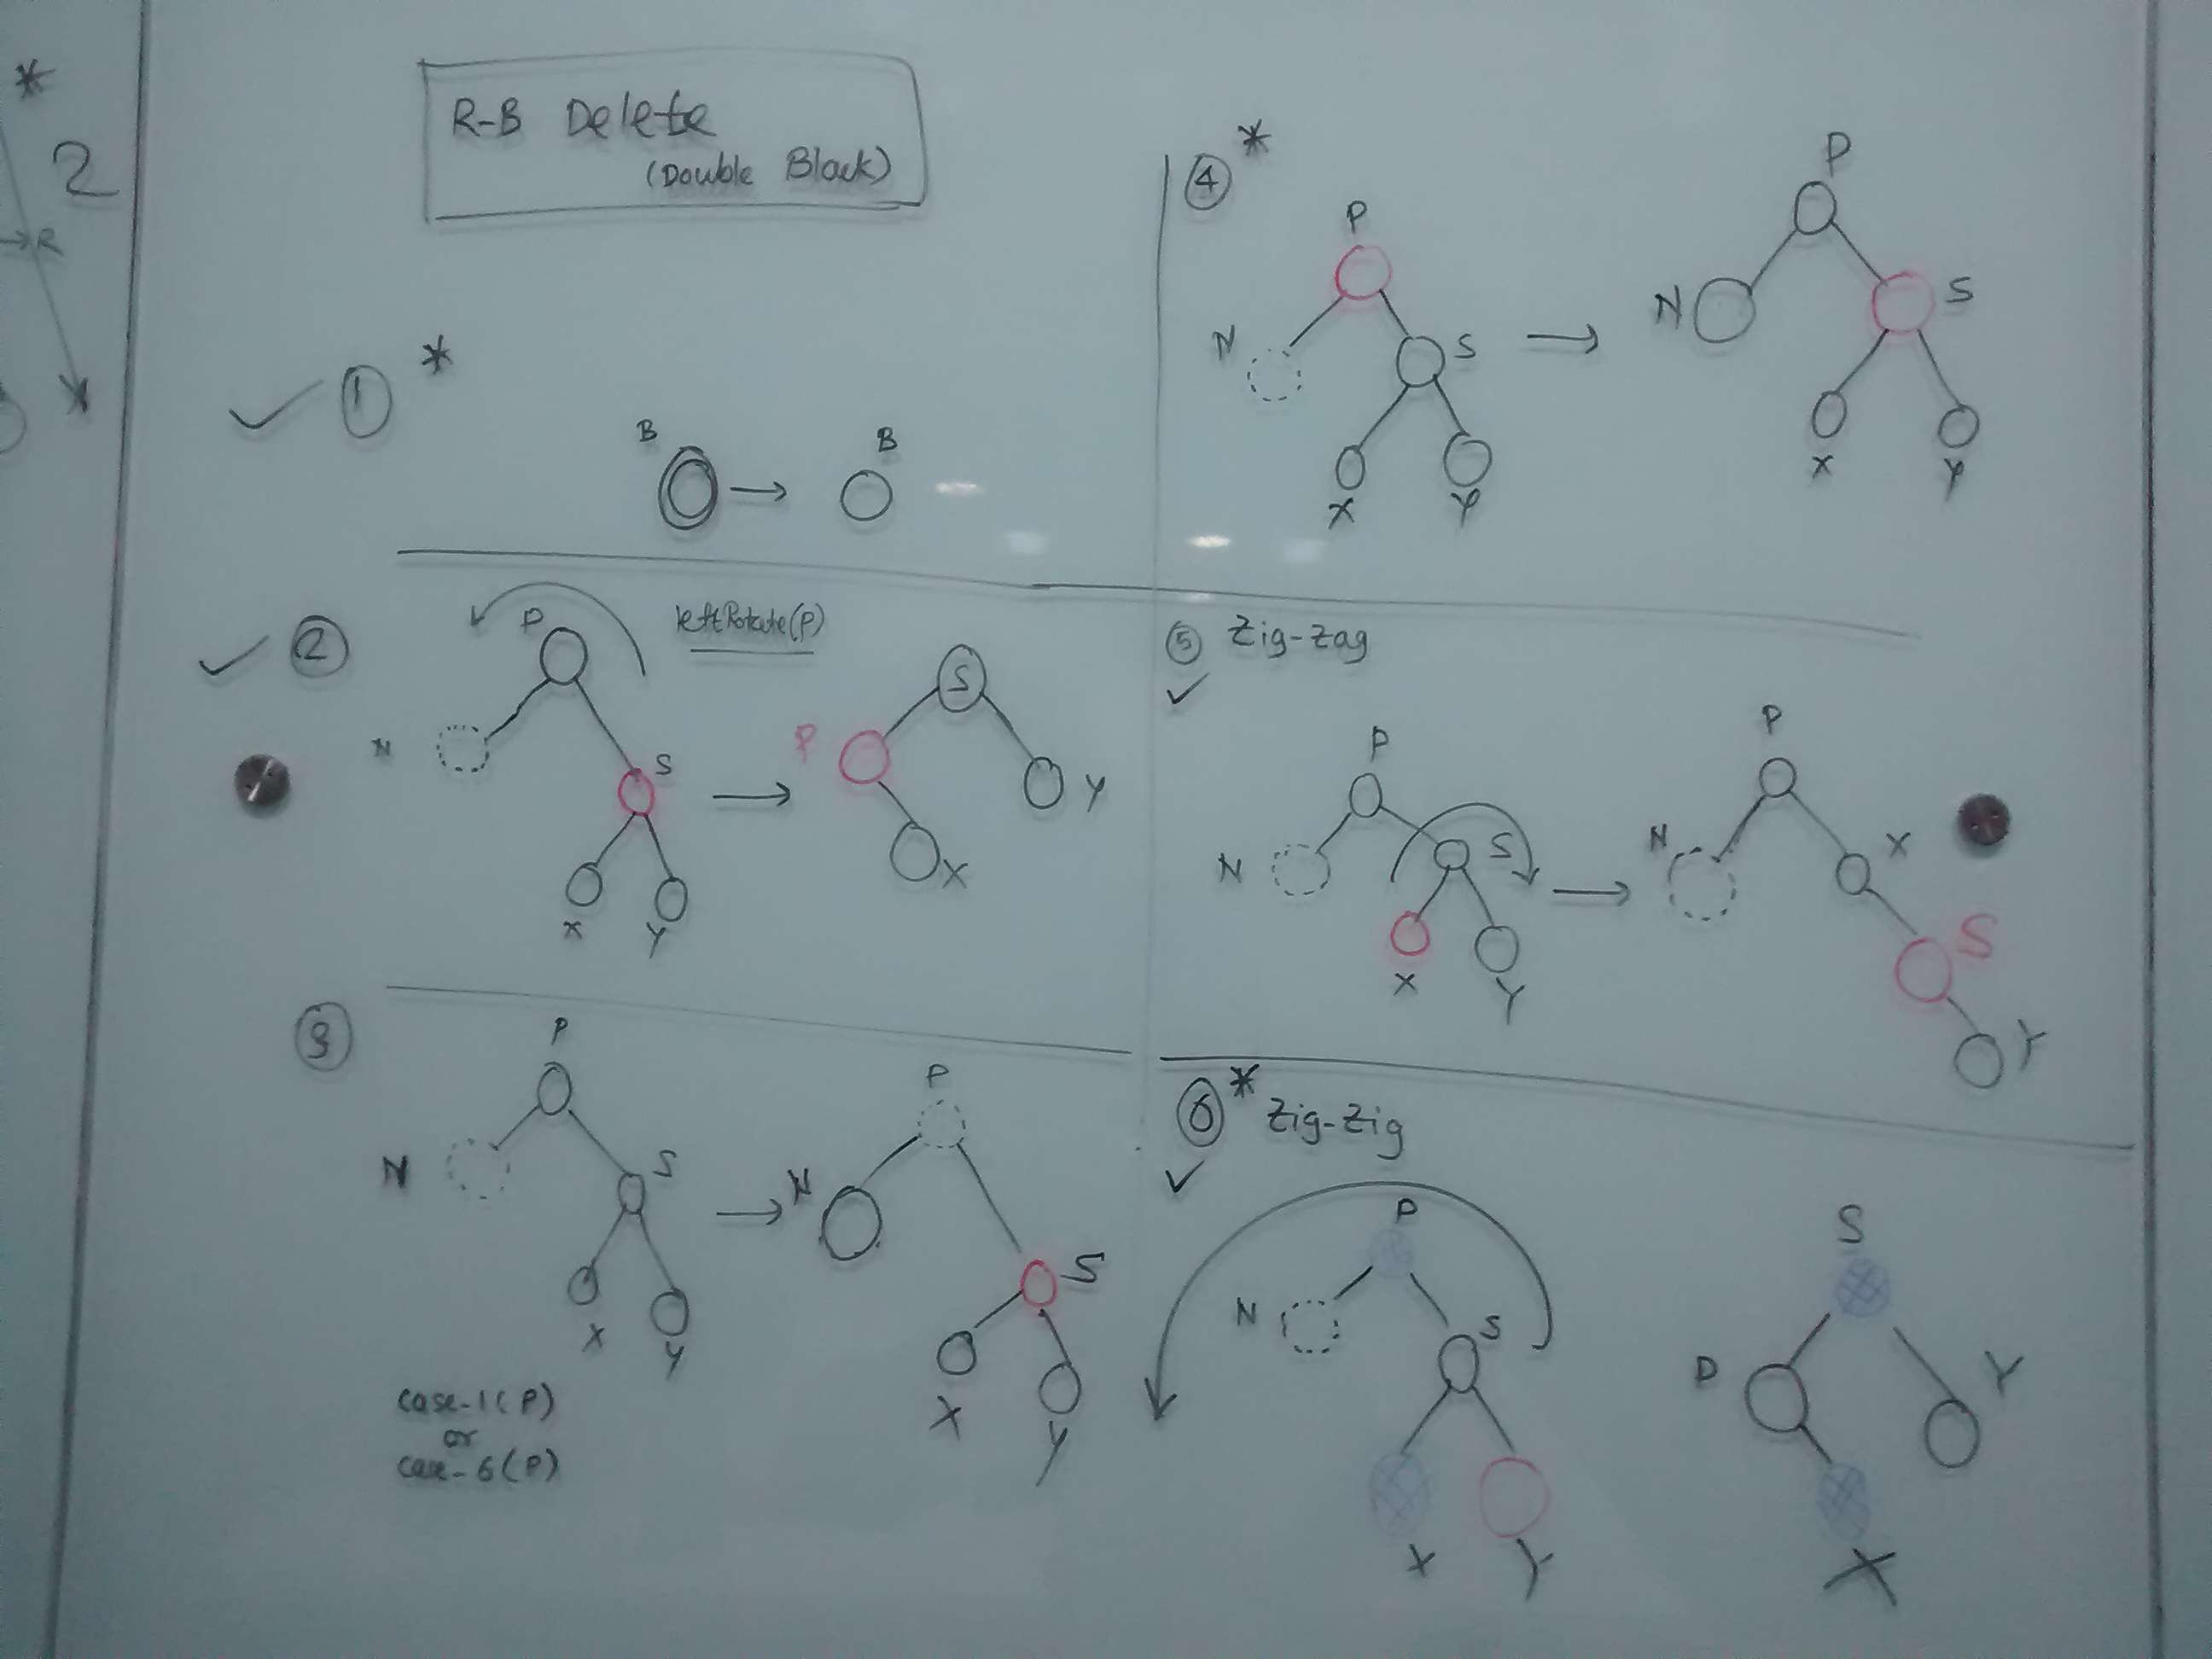 *
2
→R
R-B Delete
(Double Black)
① *
B → B
② P leftRotate(P)
N S X Y → S P Y X
③
P N S X Y → P N S X Y
case-1(P)
or
case-6(P)
④ *
P N S X Y → P N S X Y
⑤ Zig-Zag
P N S X Y → P N X S Y
⑥ * Zig-Zig
P N S X Y
S P Y X